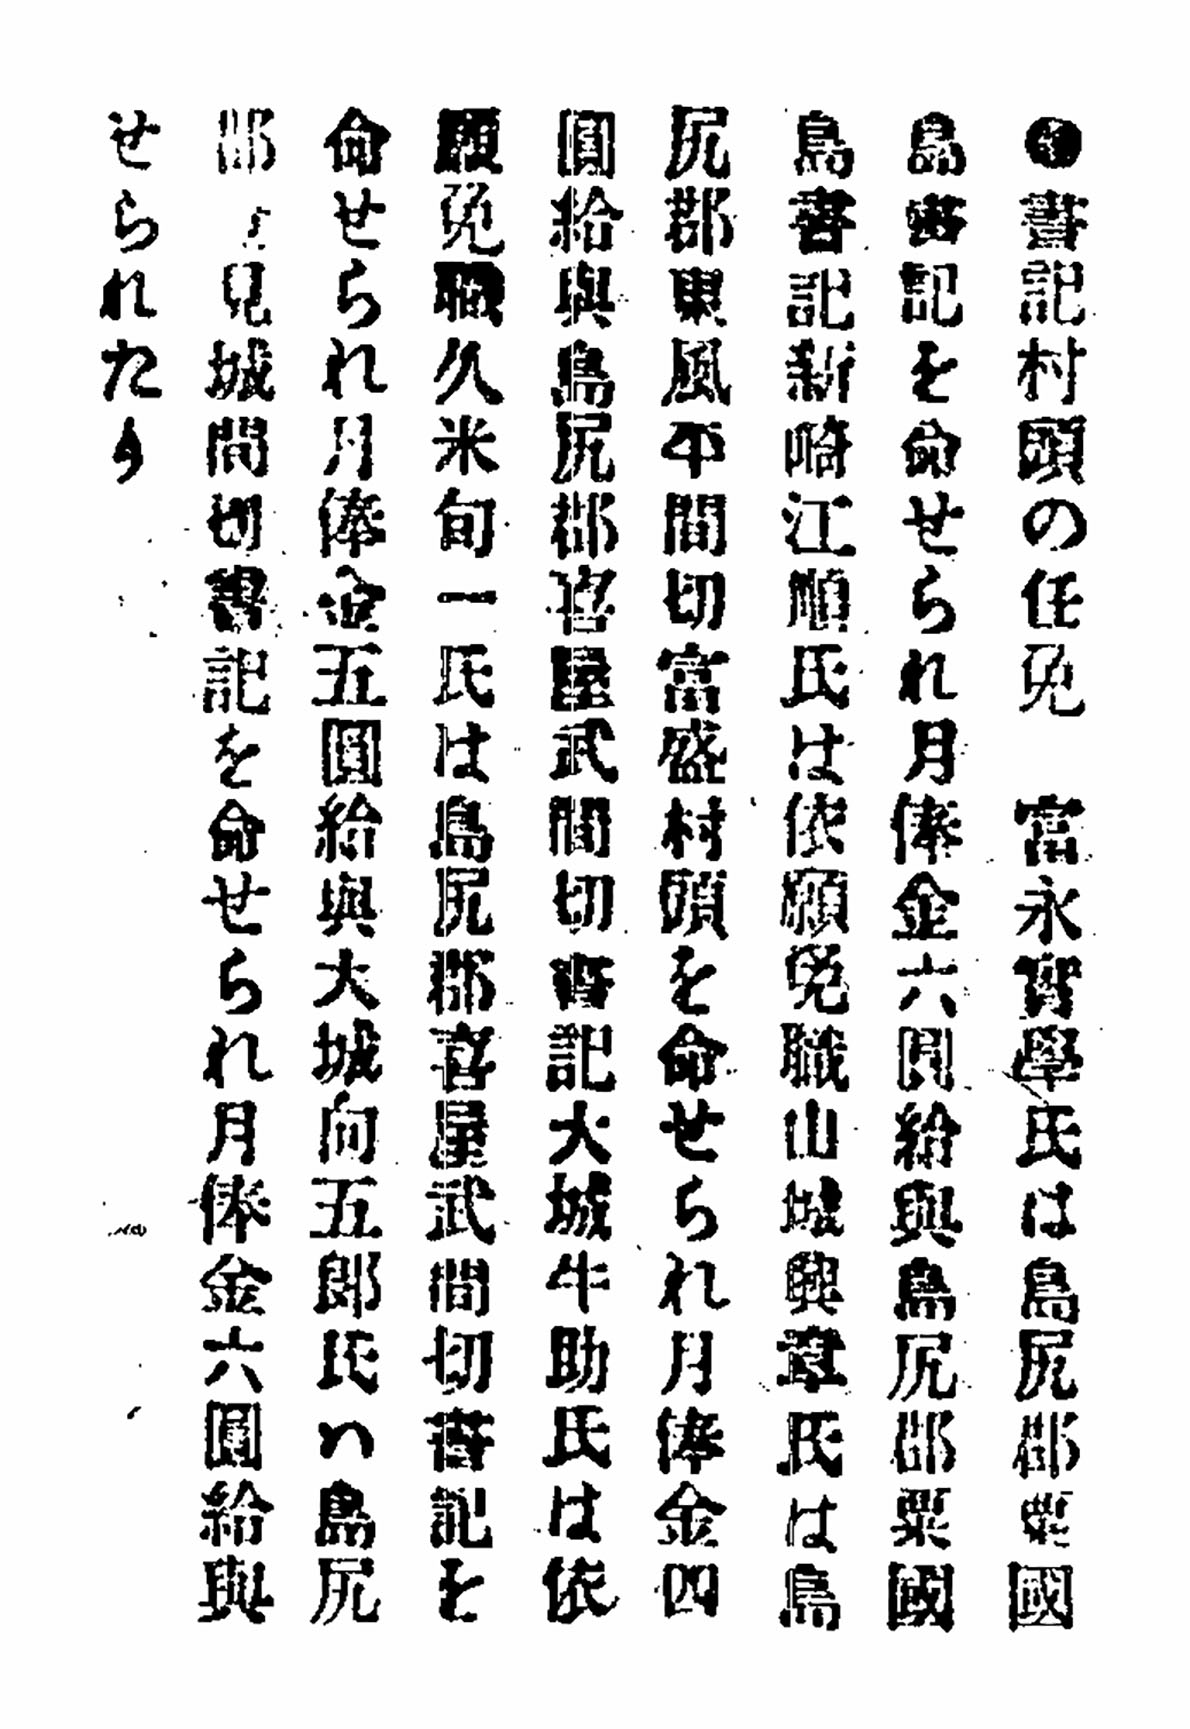 ●書記村頭の任免　富永實學氏は島尻郡粟國
島書記を命せられ月俸金六圓給與島尻郡粟國
島書記新崎江順氏は依願免職山城興章氏は島
尻郡東風平間切富盛村頭を命せられ月俸金四
圓給與島尻郡喜屋武間切書記大城牛助氏は依
願免職久米旬一氏は島尻郡喜屋武間切書記を
命せられ月俸金五圓給與大城向五郎氏ハ島尻
郡見城間切書記を命せられ月俸金六圓給與
せられたり